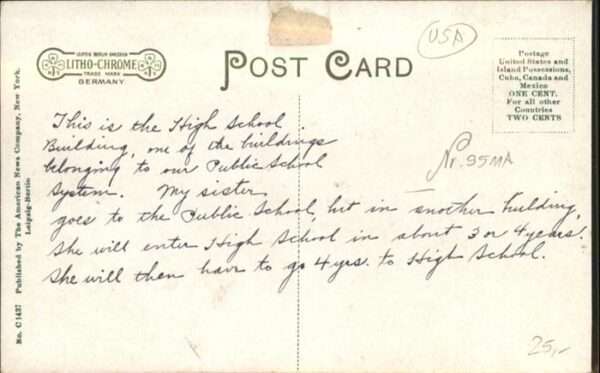 LEIPZIG BERLIN DRESDEN
LITHO-CHROME
TRADE MARK
GERMANY
POST CARD
USA
Postage
United States and
Island Possessions,
Cuba, Canada and
Mexico
ONE CENT.
For all other
Countries
TWO CENTS
This is the High School
Building, one of the buildings
belonging to our Public School
System. My sister
goes to the Public School, but in another building.
She will enter High School in about 3 or 4 years.
She will then have to go 4 yrs. to High School.
Nr. 95MA
25,-
No. C1437 Published by The American News Company, New York.
Leipzig-Berlin